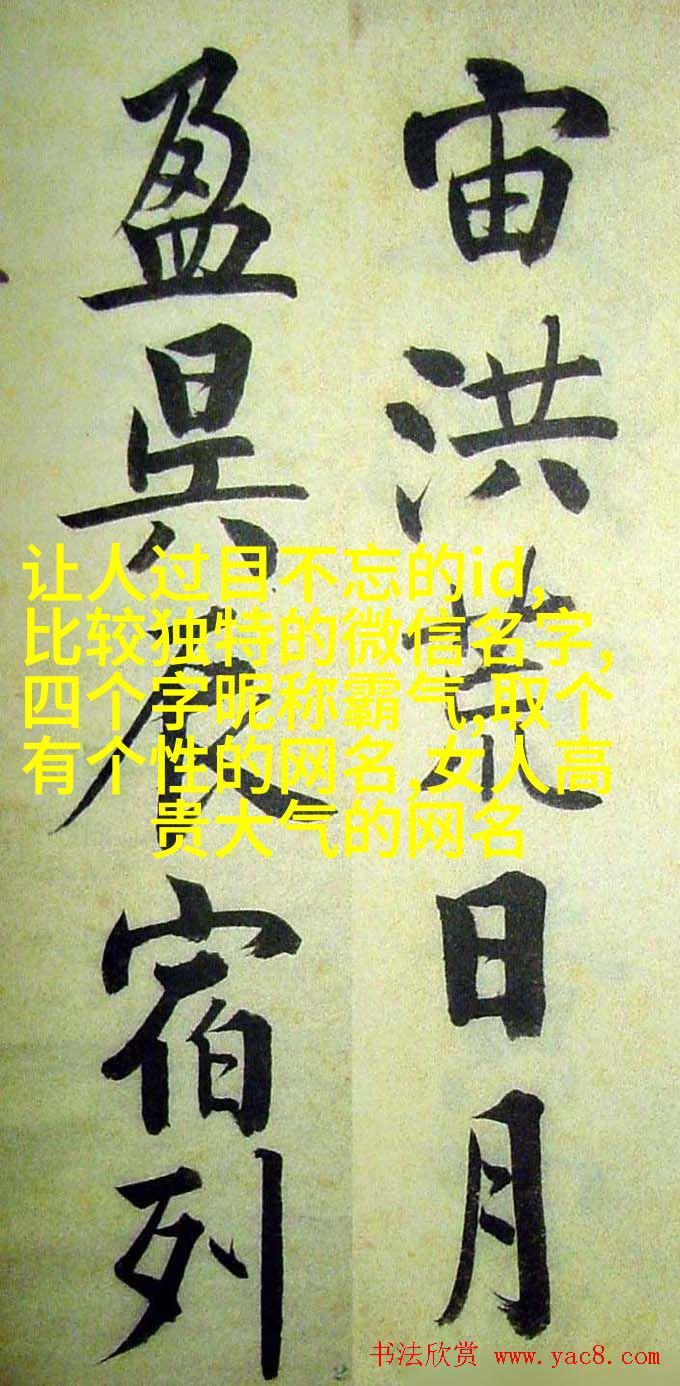 宙洪荒日月
盈昃辰宿列
让人过目不忘的id,
比较独特的微信名字,
四个字昵称霸气,取个
有个性的网名,女人高
贵大气的网名
书法欣赏 www.yac8.com